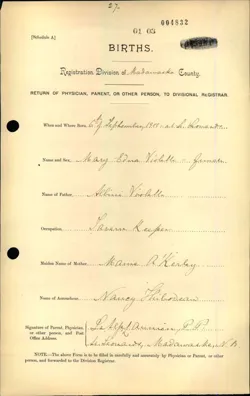 27.
004832
01 05
[Schedule A]
BIRTHS.
Registration Division of Madawaska County.
RETURN OF PHYSICIAN, PARENT, OR OTHER PERSON, TO DIVISIONAL REGISTRAR.
When and Where Born, September, at St. Leonards
Name and Sex: Mary Edna Violette - female
Name of Father: Violette
Occupation,
Maiden Name of Mother: Mame
Name of Accoucheur, Nancy Thibodeau
Signature of Parent, Physician,
or other person, and Post
Office Address. P. P.
St. Leonards, Madawaska, N. B
NOTE.—The above Form is to be filled in carefully and accurately by Physician or Parent, or other
person, and forwarded to the Division Registrar.